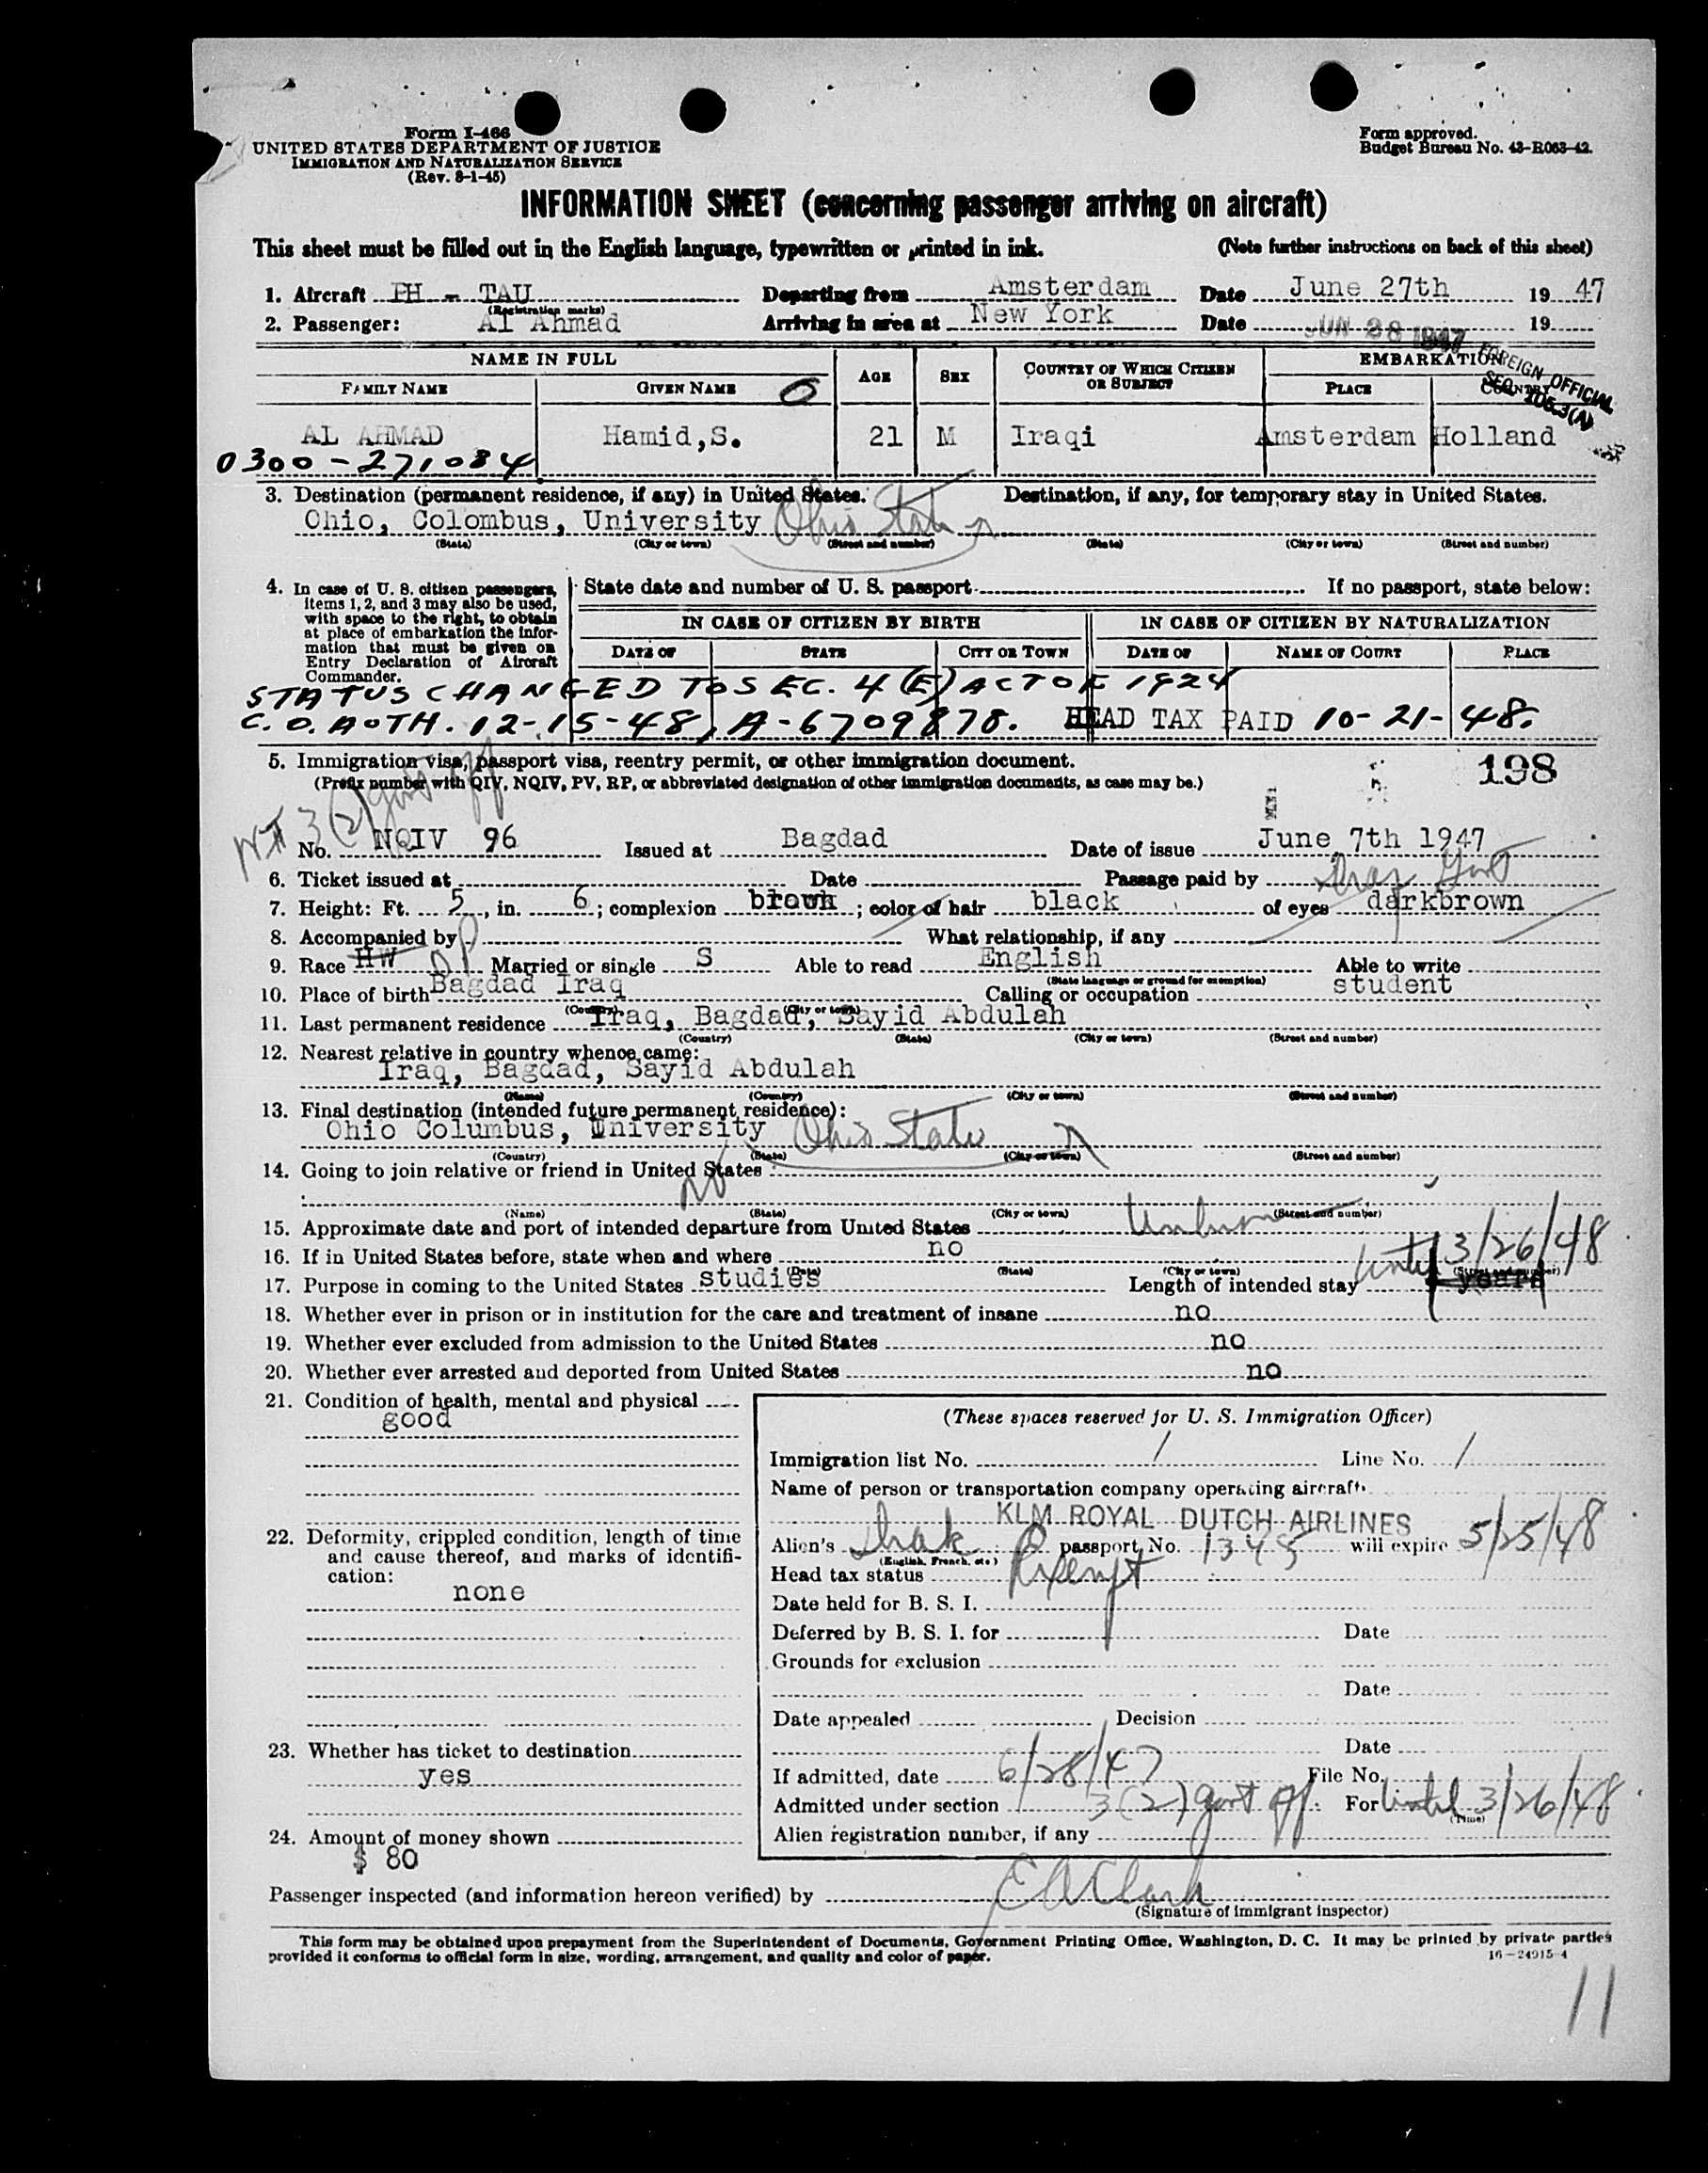 Form I-466
UNITED STATES DEPARTMENT OF JUSTICE
IMMIGRATION AND NATURALIZATION SERVICE
(Rev. 8-1-45)
Form approved.
Budget Bureau No. 43-R063-42.
INFORMATION SHEET (concerning passenger arriving on aircraft)
This sheet must be filled out in the English language, typewritten or printed in ink. (Note further instructions on back of this sheet)
1. Aircraft PH - TAU Departing from Amsterdam Date June 27th 19 47
(Registration marks)
2. Passenger: Al Ahmad Arriving in area at New York Date JUN 28 1947 19
FOREIGN OFFICIAL
SEC. 105.3(A)
NAME IN FULL AGE SEX COUNTRY OF WHICH CITIZEN OR SUBJECT EMBARKATION
FAMILY NAME GIVEN NAME PLACE COUNTRY
AL AHMAD Hamid,S. 21 M Iraqi Amsterdam Holland
0300-271084
3. Destination (permanent residence, if any) in United States. Destination, if any, for temporary stay in United States.
Ohio, Colombus, University Ohio State
(State) (City or town) (Street and number) (State) (City or town) (Street and number)
4. In case of U. S. citizen passengers, items 1, 2, and 3 may also be used, with space to the right, to obtain at place of embarkation the information that must be given on Entry Declaration of Aircraft Commander.
State date and number of U. S. passport If no passport, state below:
IN CASE OF CITIZEN BY BIRTH IN CASE OF CITIZEN BY NATURALIZATION
DATE OF STATE CITY OR TOWN DATE OF NAME OF COURT PLACE
STATUS CHANGED TO SEC. 4 (E) ACT OF 1924
C.O. AUTH. 12-15-48, A-6709878. HEAD TAX PAID 10-21-48.
5. Immigration visa, passport visa, reentry permit, or other immigration document. 198
(Prefix number with QIV, NQIV, PV, RP, or abbreviated designation of other immigration documents, as case may be.)
3(2) govt off
No. NQIV 96 Issued at Bagdad Date of issue June 7th 1947
6. Ticket issued at Date Passage paid by Iraq Govt
7. Height: Ft. 5, in. 6; complexion brown; color of hair black of eyes darkbrown
8. Accompanied by What relationship, if any
9. Race HW Married or single S Able to read English Able to write
(State language or ground for exemption)
10. Place of birth Bagdad Iraq Calling or occupation student
(Country) (City or town)
11. Last permanent residence Iraq, Bagdad, Sayid Abdulah
(Country) (State) (City or town) (Street and number)
12. Nearest relative in country whence came:
Iraq, Bagdad, Sayid Abdulah
(Name) (Country) (City or town) (Street and number)
13. Final destination (intended future permanent residence):
Ohio Columbus, University Ohio State
(Country) (State) (City or town) (Street and number)
14. Going to join relative or friend in United States no
(Name) (State) (City or town) (Street and number)
15. Approximate date and port of intended departure from United States
16. If in United States before, state when and where no
(Date) (State) (City or town) (Street and number)
17. Purpose in coming to the United States studies Length of intended stay years until 3/26/48
18. Whether ever in prison or in institution for the care and treatment of insane no
19. Whether ever excluded from admission to the United States no
20. Whether ever arrested and deported from United States no
21. Condition of health, mental and physical
good
22. Deformity, crippled condition, length of time and cause thereof, and marks of identification:
none
23. Whether has ticket to destination
yes
24. Amount of money shown
$ 80
(These spaces reserved for U. S. Immigration Officer)
Immigration list No. 1 Line No. 1
Name of person or transportation company operating aircraft
KLM ROYAL DUTCH AIRLINES
Alien's Irak passport No. 1345 will expire 5/25/48
(English, French, etc.)
Head tax status Exempt
Date held for B. S. I.
Deferred by B. S. I. for Date
Grounds for exclusion
Date
Date appealed Decision
Date
If admitted, date 6/28/47 File No.
Admitted under section 3(2) govt off. For until 3/26/48
(Time)
Alien registration number, if any
Passenger inspected (and information hereon verified) by E A Clark
(Signature of immigrant inspector)
This form may be obtained upon prepayment from the Superintendent of Documents, Government Printing Office, Washington, D. C. It may be printed by private parties
provided it conforms to official form in size, wording, arrangement, and quality and color of paper. 16-24915-4
11